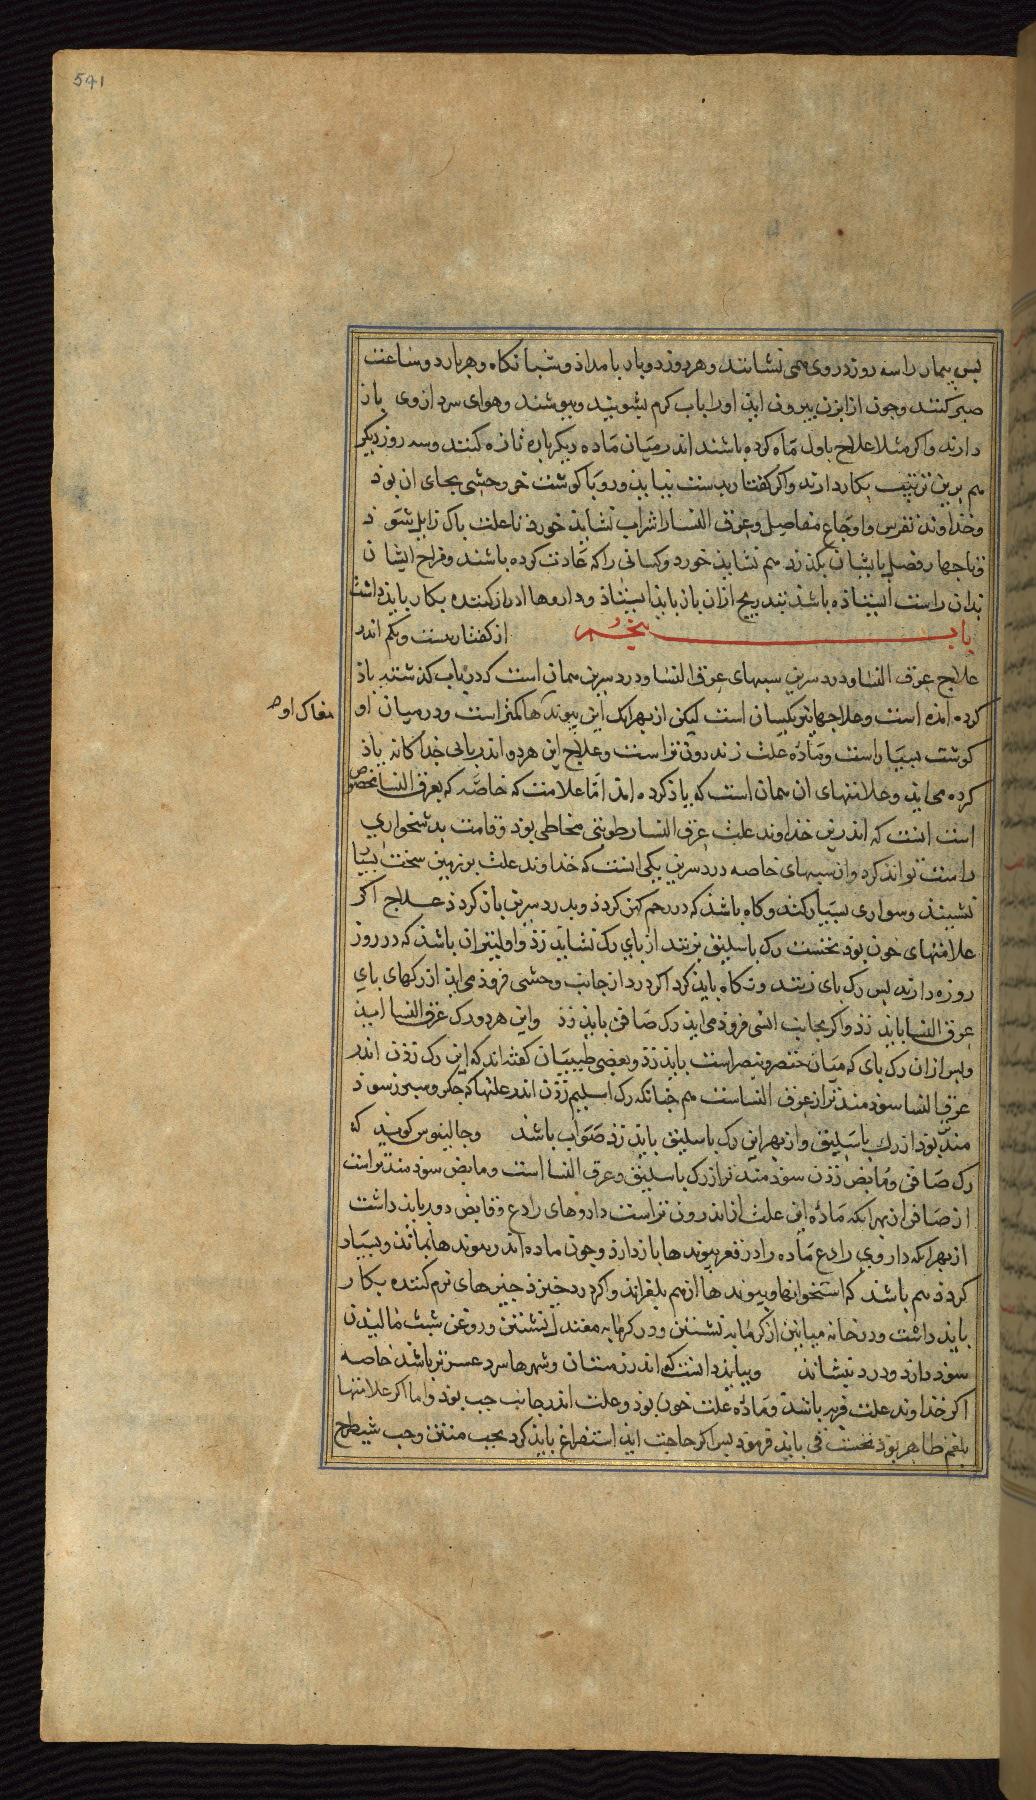 541
بس بیمار را سه روز در وی همی نشانند و هر روز دوبار بامداذ و شبانکاه و هر بار دو ساعت
صبر کنند و جون از ابزن بیرون ایذ اورا باب کرم بشویند و ببوشند و هوای سرد از وی باز
دارند و اکر مثلا علاج باول ماه کرده باشند اندر میان ماه دیکر باره تازه کنند و سه روز دیکر
هم برین ترتیب بکار دارند و اکر کفتار بدست نیاید و روباه کوشت خر وحشی بجای ان بوذ
و خذاوند نقرس و اوجاع مفاصل و عرق النسا را شراب نشاید خورد تا علت باک زایل شوذ
و تا جهار فصل بایشان بکذرد هم نشاید خورد و کسانی را که عادت کرده باشند و مزاج ایشان
بدان راست ایستاذه باشذ بتدریج از ان باز باید ایستاذ و داروها ادرار کننده بکار باید داشت
باب بنجم از کفتار بیست و یکم اندر
علاج عرق النسا و درد سرین سببهای عرق النسا و درد سرین همان است که در باب کذشته یاذ
کرده امذه است و علاجها نیز یکسان است لیکن از بهر انک این بیوندها کمتر است و در میان او
مغاک او
کوشت بسیار است و ماده علت ز اندرون تر است و علاج این هر دو اندر بابی جذاکانه یاذ
کرده می اید و علامتهای ان همان است که یاذ کرده امد اما علامت که خاصه که بعرق النسا مخصوص
است انست که اندرین خذاوند علت عرق النسا رطوبتی مخاطی بوذ و قامت بدشخواری
راست تواند کرد و از سببهای خاصه درد سرین یکی انست که خذاوند علت بر زمین سخت بسیار
نشیند و سواری بسیار کند و کاه باشذ که درد رحم کهن کردذ و بدرد سرین باز کردذ علاج اکر
علامتهای خون بوذ نخست رک باسلیق بزنند از بای رک نشاید زذ و اولیتر ان باشذ که در روز
روزه دارند بس رک بای زنند و نکاه باید کرد اکر درد از جانب وحشی فروذ می اید از رکهای بای
عرق النسا باید زذ و اکر بجانب انسی فروذ می اید رک صافن باید زذ و این هر دو رک عرق النسا
و بس از ان رک بای که میان خنصر و بنصر است باید زذ و بعضی طبیبان کفته اند که این رک زذن اندر
عرق النسا سوذمندتر از عرق النساست هم جنانکه رک اسیلم زذن اندر علتها که جکر و سبرز سوذ
مندتر بوذ از رک باسلیق و از بهر این رک باسلیق باید زذ صواب باشذ و جالینوس کوید که
رک صافن و مابض زذن سوذمند تر از رک باسلیق و عرق النسا است و مابض سوذمندتر است
از صافن از بهر انکه ماده این علت از اندرون تر است داروهای رادع و قابض دور باید داشت
از بهر انکه داروی رادع ماده را در قعر بیوندها باز دارذ و جون ماده اندر بیوندها بماند و بسیار
کردذ بیم باشذ که استخوانها و بیوندها از هم بلغزاند و اکر درد خیزذ جیزهای نرم کننده بکار
باید داشت و در خانه میانین از کرمابه نشستن و در کرمابه معتدل نشستن و روغن شبت مالیدن
سوذ دارد و درد بنشاند و بباید دانست که اندر زمستان و شهرها سرد عسرتر باشذ خاصه
اکر خذاوند علت فربه باشذ و ماده علت خون بوذ و علت اندر جانب جب بوذ و اما اکر علامتها
بلغم ظاهر بوذ نخست قی باید فرموذ بس اکر حاجت ایذ استفراغ باید کرد بحب منتن و حب شیطرج